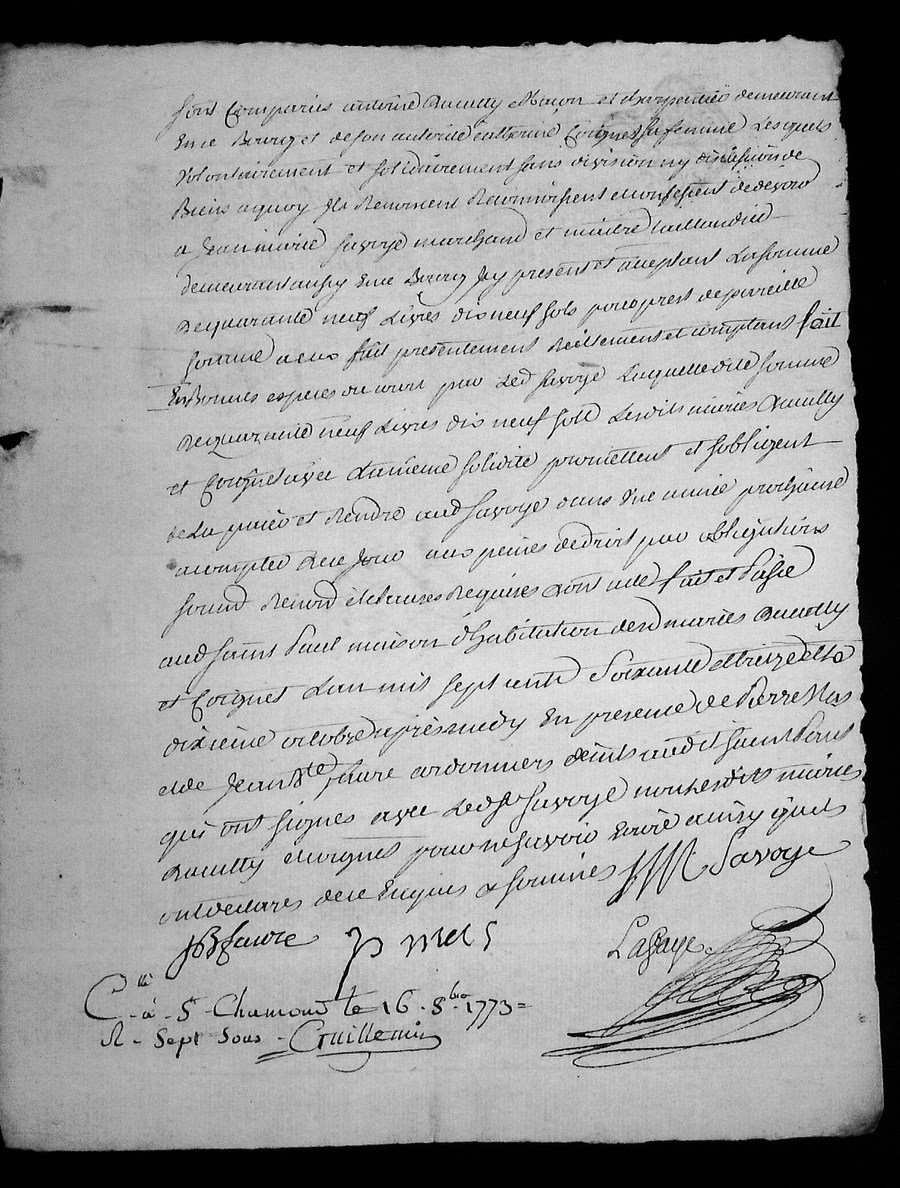 sont Comparies antoine Rueully Maçon et charpentier demeurant
En ce Bourg et de son autorité catherine Coignet sa femme Lesquels
volontairement et solidairement sans division ny discussion de
Biens a quoy Ils Renoncent Reconnoissent et confessent de devoir
a Jean marie Savoye marchand et maitre taillandier
demeurant aussy En ce Bourg Icy present et acceptant La somme
de quarante neuf Livres dix neuf sols pour prest de pareille
somme a eux fait presentement Réellement et comptant fait
En Bonnes especes du cours par Led Savoye Laquelle dite somme
de quarante neuf Livres dix neuf sols Lesdits mariés
et Coignet avec La même solidité promettent et sobligent
de La payer et Rendre aud Savoye dans Une année prochaine
a compter de ce Jour aux peines de droit par obligations
soumd Renond et clauses Requises dont acte fait et Passé
aud saint Paul maison d'habitation desd mariés
et Coignet L'an mil sept cents Soixante et treize et Le
dixieme octobre après midy En presence de Pierre
et de Jean Bte faure cordonniers dud audit saint Paul
qui ont signés avec Led Sr Savoye non lesdits mariés
et Coignet pour ne savoir Ecrire ainsy quils
ont declarés de ce Enquis et sommés JM Savoye
JB faure P mels Lafaye
Clle à St Chamond le 16 8bre 1773
R Sept Sous Guillemin